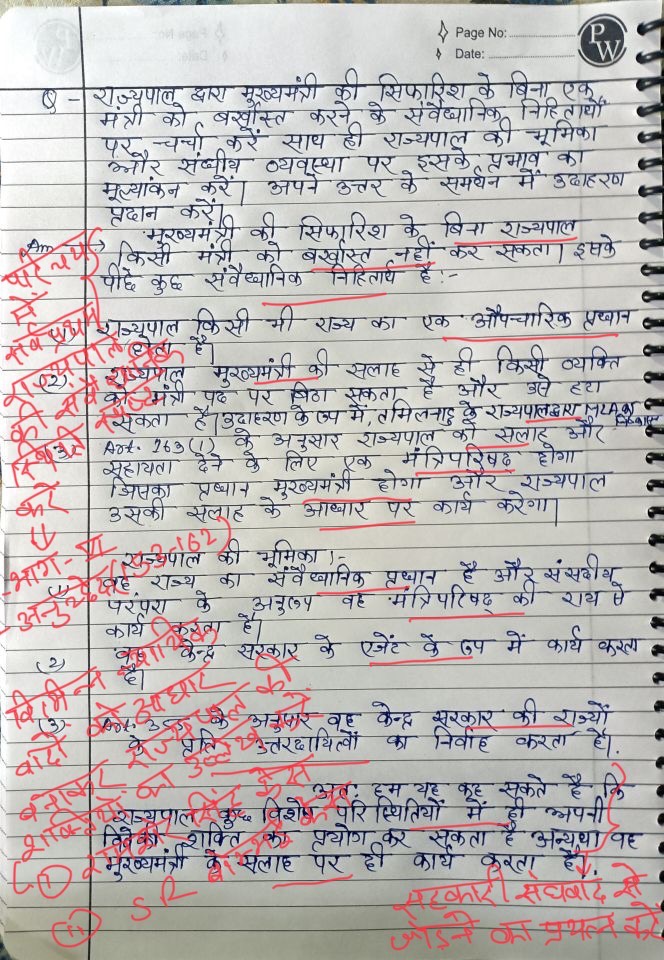 Page No:
Date:
PW
Q - राज्यपाल द्वारा मुख्यमंत्री की सिफारिश के बिना एक
मंत्री को बर्खास्त करने के संवैधानिक निहितार्थो
पर चर्चा करें साथ ही राज्यपाल की भूमिका
और संघीय व्यवस्था पर इसके प्रभाव का
मूल्यांकन करें। अपने उत्तर के समर्थन में उदाहरण
प्रदान करें।
Ans → मुख्यमंत्री की सिफारिश के बिना राज्यपाल
किसी मंत्री को बर्खास्त नहीं कर सकता। इसके
पीछे कुछ संवैधानिक निहितार्थ है:-
राज्यपाल किसी भी राज्य का एक औपचारिक प्रधान
होता है।
(2) राज्यपाल मुख्यमंत्री की सलाह से ही किसी व्यक्ति
को मंत्री पद पर बिठा सकता है और उसे हटा
सकता है। उदाहरण के रूप में, तमिलनाडु के राज्यपाल द्वारा MLA
(3) Art. 163(1) के अनुसार राज्यपाल को सलाह और
सहायता देने के लिए एक मंत्रिपरिषद होगा
जिसका प्रधान मुख्यमंत्री होगा और राज्यपाल
उसकी सलाह के आधार पर कार्य करेगा।
राज्यपाल की भूमिका :-
(1) वह राज्य का संवैधानिक प्रधान है और संसदीय
परंपरा के अनुरूप वह मंत्रिपरिषद की राय से
कार्य करता है।
(2) वह केन्द्र सरकार के एजेंट के रूप में कार्य करता
है।
(3) Art. के अनुसार वह केन्द्र सरकार की राज्यों
के प्रति उत्तरदायित्वों का निर्वाह करता है।
अतः हम यह कह सकते है कि
राज्यपाल कुछ विशेष परिस्थितियों में ही अपनी
विवेकी शक्ति का प्रयोग कर सकता है अन्यथा वह
मुख्यमंत्री के सलाह पर ही कार्य करता है।
परिचय
में
सर्वप्रथम
राज्यपाल
की संवैधानिक
स्थिति स्पष्ट
करें
↓
भाग-VI
अनुच्छेद (153-162)
विभिन्न
वादों को आधार
बनाकर राज्यपाल की
शक्तियों का उल्लेख करें
(i)
(ii) S R
सहकारी संघवाद से
जोड़ने का प्रयत्न करें